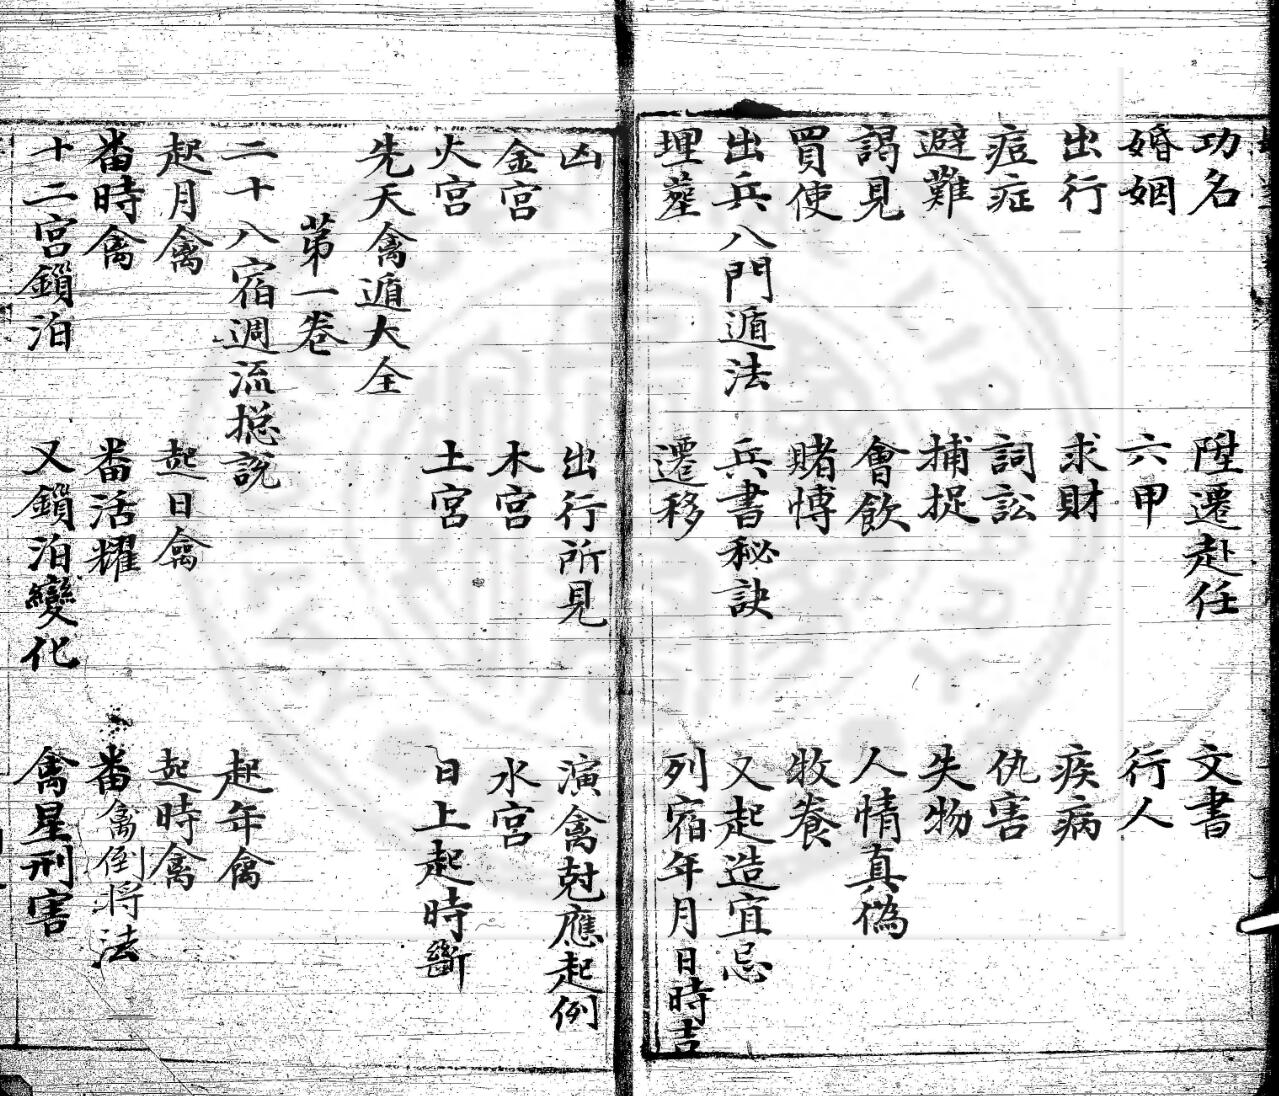 功名 陞遷赴任 文書
婚姻 六甲 行人
出行 求財 疾病
痘症 詞訟 仇害
避難 捕捉 失物
謁見 會飲 人情真偽
買使 賭博 牧養
出兵八門遁法 兵書秘訣 又起造宜忌
埋塟 遷移 列宿年月日時吉
凶 出行所見 演禽尅應起例
金宮 木宮 水宮
火宮 土宮 日上起時斷
先天禽遁大全
第一卷
二十八宿週流摠說 起年禽
起月禽 起日禽 起時禽
畨時禽 畨活耀 畨禽倒將法
十二宮鎖泊 又鎖泊變化 禽星刑害